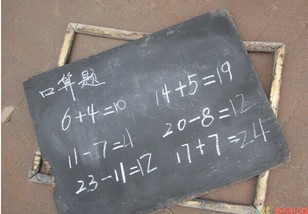 口算题
6+4=10
14+5=19
11-7=4
20-8=12
23-11=12
17+7=24